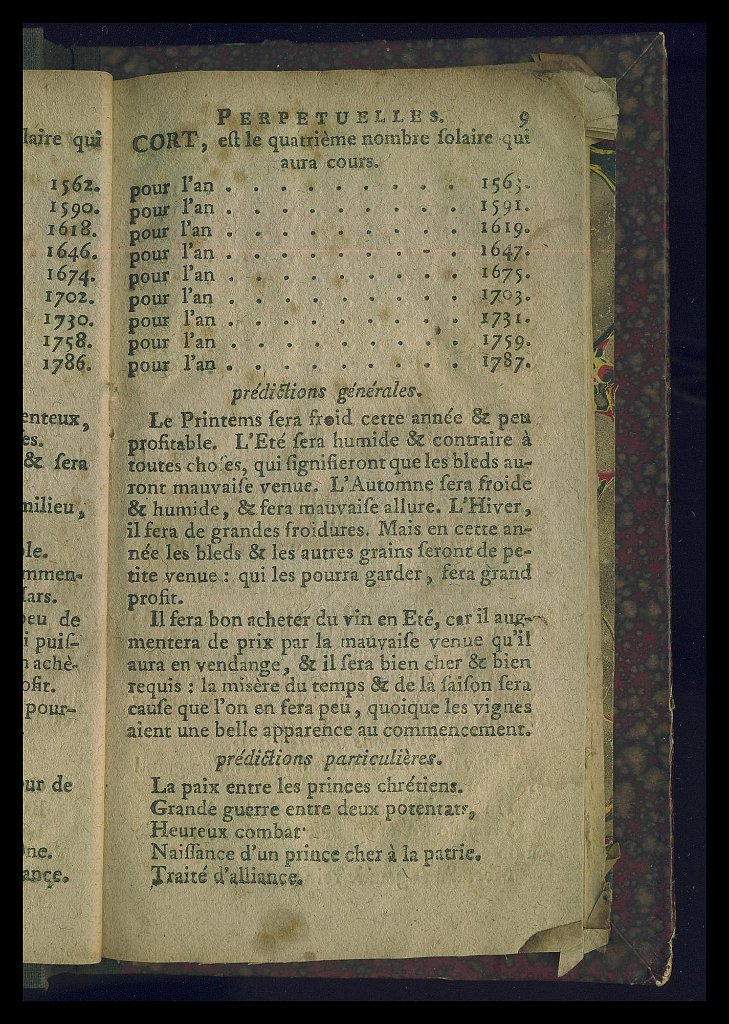 laire qui
1562.
1590.
1618.
1646.
1674.
1702.
1730.
1758.
1786.
enteux,
es.
& ſera
milieu,
le.
mmen-
ſars.
peu de
i puiſ-
n achè-
ofit.
pour-
ur de
ne.
ance.
PERPETUELLES. 9
CORT, eſt le quatrième nombre ſolaire qui
aura cours.
pour l'an . . . . . . . . . 1563.
pour l'an . . . . . . . . . 1591.
pour l'an . . . . . . . . . 1619.
pour l'an . . . . . . . . . 1647.
pour l'an . . . . . . . . . 1675.
pour l'an . . . . . . . . . 1703.
pour l'an . . . . . . . . . 1731.
pour l'an . . . . . . . . . 1759.
pour l'an . . . . . . . . . 1787.
prédictions générales.
Le Printems ſera froid cette année & peu
profitable. L'Eté ſera humide & contraire à
toutes choſes, qui ſignifieront que les bleds au-
ront mauvaiſe venue. L'Automne ſera froide
& humide, & fera mauvaiſe allure. L'Hiver,
il fera de grandes froidures. Mais en cette an-
née les bleds & les autres grains ſeront de pe-
tite venue : qui les pourra garder, fera grand
profit.
Il fera bon acheter du vin en Eté, car il aug-
mentera de prix par la mauvaiſe venue qu'il
aura en vendange, & il ſera bien cher & bien
requis : la misère du temps & de la ſaiſon ſera
cauſe que l'on en fera peu, quoique les vignes
aient une belle apparence au commencement.
prédictions particulières.
La paix entre les princes chrétiens.
Grande guerre entre deux potentats,
Heureux combat
Naiſſance d'un prince cher à la patrie.
Traité d'alliance.